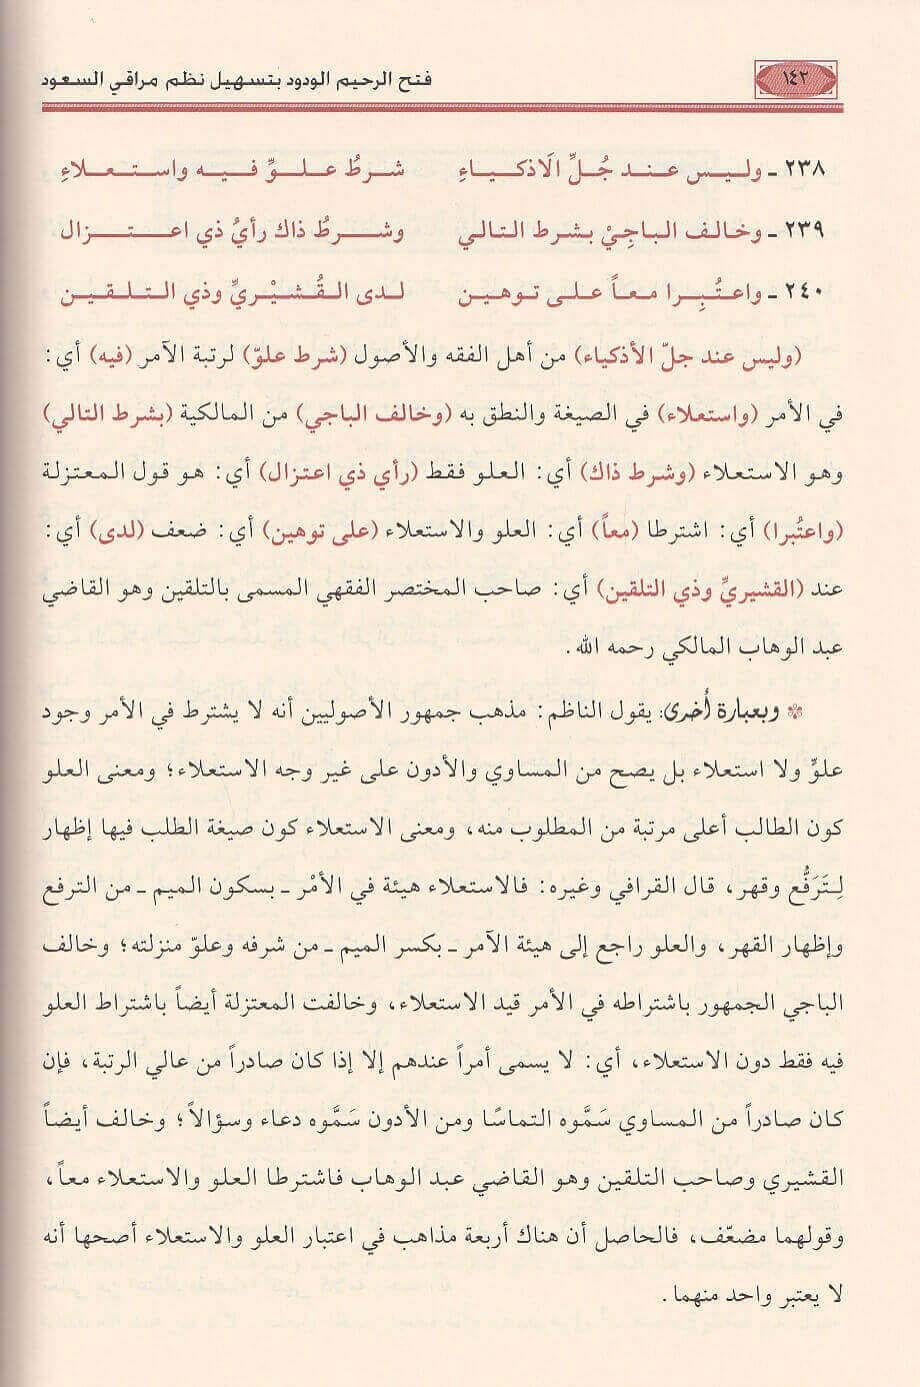 ١٤٢
فتح الرحيم الودود بتسهيل نظم مراقي السعود
٢٣٨ ـ وليس عند جُلِّ الَاذكياءِ شرطُ علوِّ فيه واستعلاءِ
٢٣٩ ـ وخالف الباجِيْ بشرط التالي وشرطُ ذاك رأيُ ذي اعتزال
٢٤٠ ـ واعتُبِرا معاً على توهين لدى القُشيْريِّ وذي التلقين
(وليس عند جلّ الأذكياء) من أهل الفقه والأصول (شرط علوّ) لرتبة الآمر (فيه) أي:
في الأمر (واستعلاء) في الصيغة والنطق به (وخالف الباجي) من المالكية (بشرط التالي)
وهو الاستعلاء (وشرط ذاك) أي: العلو فقط (رأي ذي اعتزال) أي: هو قول المعتزلة
(واعتُبرا) أي: اشترطا (معاً) أي: العلو والاستعلاء (على توهين) أي: ضعف (لدى) أي:
عند (القشيريِّ وذي التلقين) أي: صاحب المختصر الفقهي المسمى بالتلقين وهو القاضي
عبد الوهاب المالكي رحمه الله.
✽ وبعبارة أُخرى: يقول الناظم: مذهب جمهور الأصوليين أنه لا يشترط في الأمر وجود
علوٍّ ولا استعلاء بل يصح من المساوي والأدون على غير وجه الاستعلاء؛ ومعنى العلو
كون الطالب أعلى مرتبة من المطلوب منه، ومعنى الاستعلاء كون صيغة الطلب فيها إظهار
لِتَرَفُّع وقهر، قال القرافي وغيره: فالاستعلاء هيئة في الأمْر ـ بسكون الميم ـ من الترفع
وإظهار القهر، والعلو راجع إلى هيئة الآمر ـ بكسر الميم ـ من شرفه وعلوّ منزلته؛ وخالف
الباجي الجمهور باشتراطه في الأمر قيد الاستعلاء، وخالفت المعتزلة أيضاً باشتراط العلو
فيه فقط دون الاستعلاء، أي: لا يسمى أمراً عندهم إلا إذا كان صادراً من عالي الرتبة، فإن
كان صادراً من المساوي سَمَّوه التماسًا ومن الأدون سَمَّوه دعاء وسؤالاً؛ وخالف أيضاً
القشيري وصاحب التلقين وهو القاضي عبد الوهاب فاشترطا العلو والاستعلاء معاً،
وقولهما مضعّف، فالحاصل أن هناك أربعة مذاهب في اعتبار العلو والاستعلاء أصحها أنه
لا يعتبر واحد منهما.